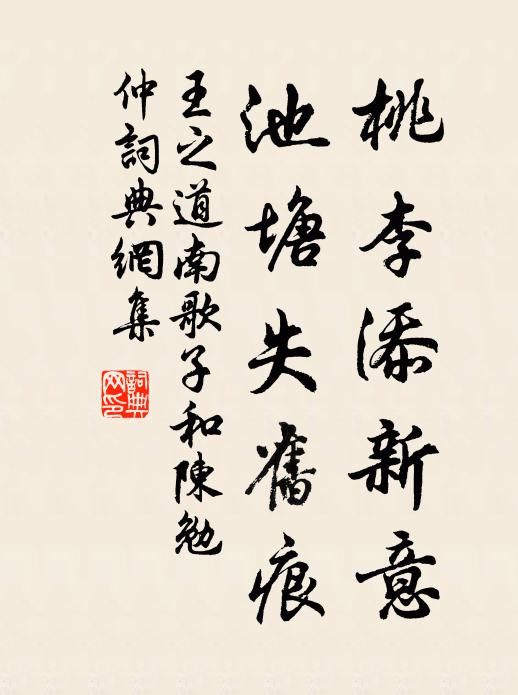 桃李添新意
池塘失舊痕
王之道南歌子和陳勉
仲詞典網集
詞典
網印